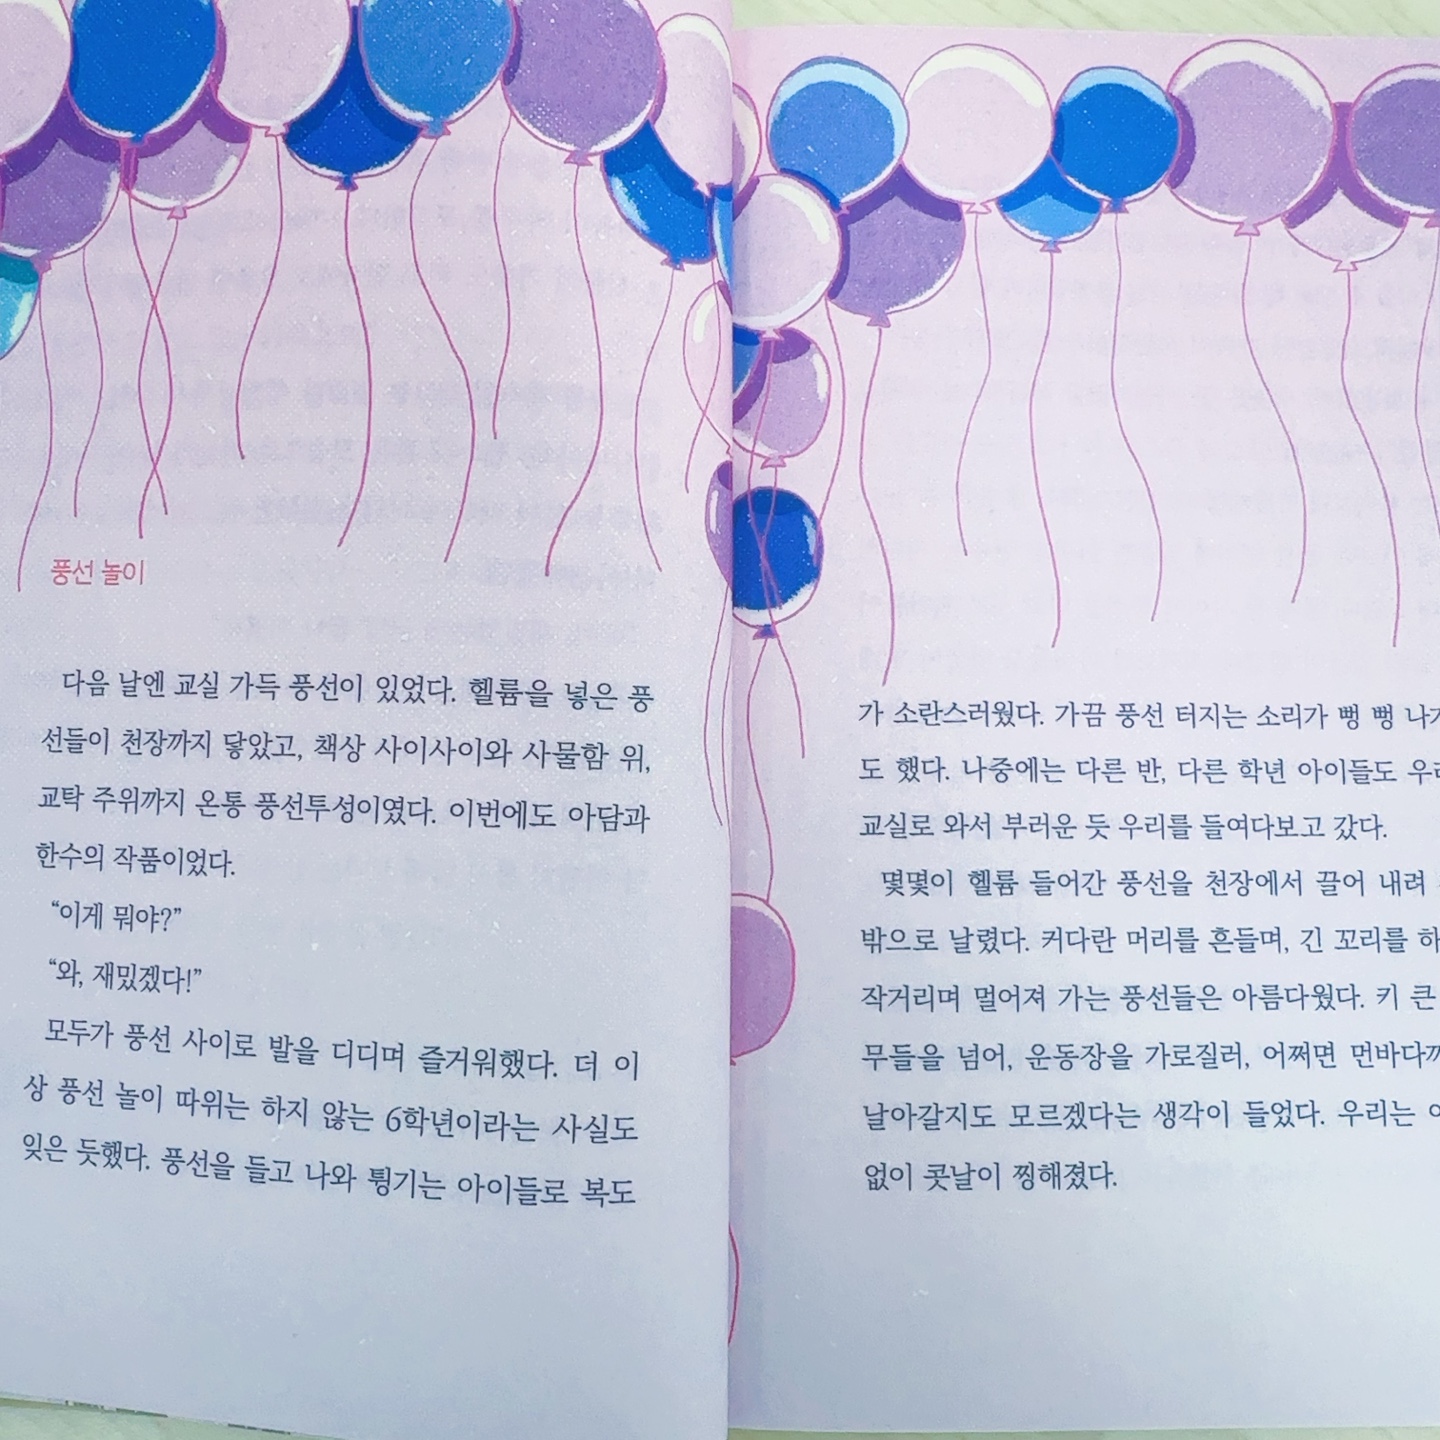 풍선 놀이
다음 날엔 교실 가득 풍선이 있었다. 헬륨을 넣은 풍
선들이 천장까지 닿았고, 책상 사이사이와 사물함 위,
교탁 주위까지 온통 풍선투성이였다. 이번에도 아담과
한수의 작품이었다.
“이게 뭐야?”
“와, 재밌겠다!”
모두가 풍선 사이로 발을 디디며 즐거워했다. 더 이
상 풍선 놀이 따위는 하지 않는 6학년이라는 사실도
잊은 듯했다. 풍선을 들고 나와 튕기는 아이들로 복도
가 소란스러웠다. 가끔 풍선 터지는 소리가 뻥 뻥
도 했다. 나중에는 다른 반, 다른 학년 아이들도
교실로 와서 부러운 듯 우리를 들여다보고 갔다.
몇몇이 헬륨 들어간 풍선을 천장에서 끌어 내려
밖으로 날렸다. 커다란 머리를 흔들며, 긴 꼬리를
작거리며 멀어져 가는 풍선들은 아름다웠다. 키 큰
무들을 넘어, 운동장을 가로질러, 어쩌면
날아갈지도 모르겠다는 생각이 들었다. 우리는
없이 콧날이 찡해졌다.